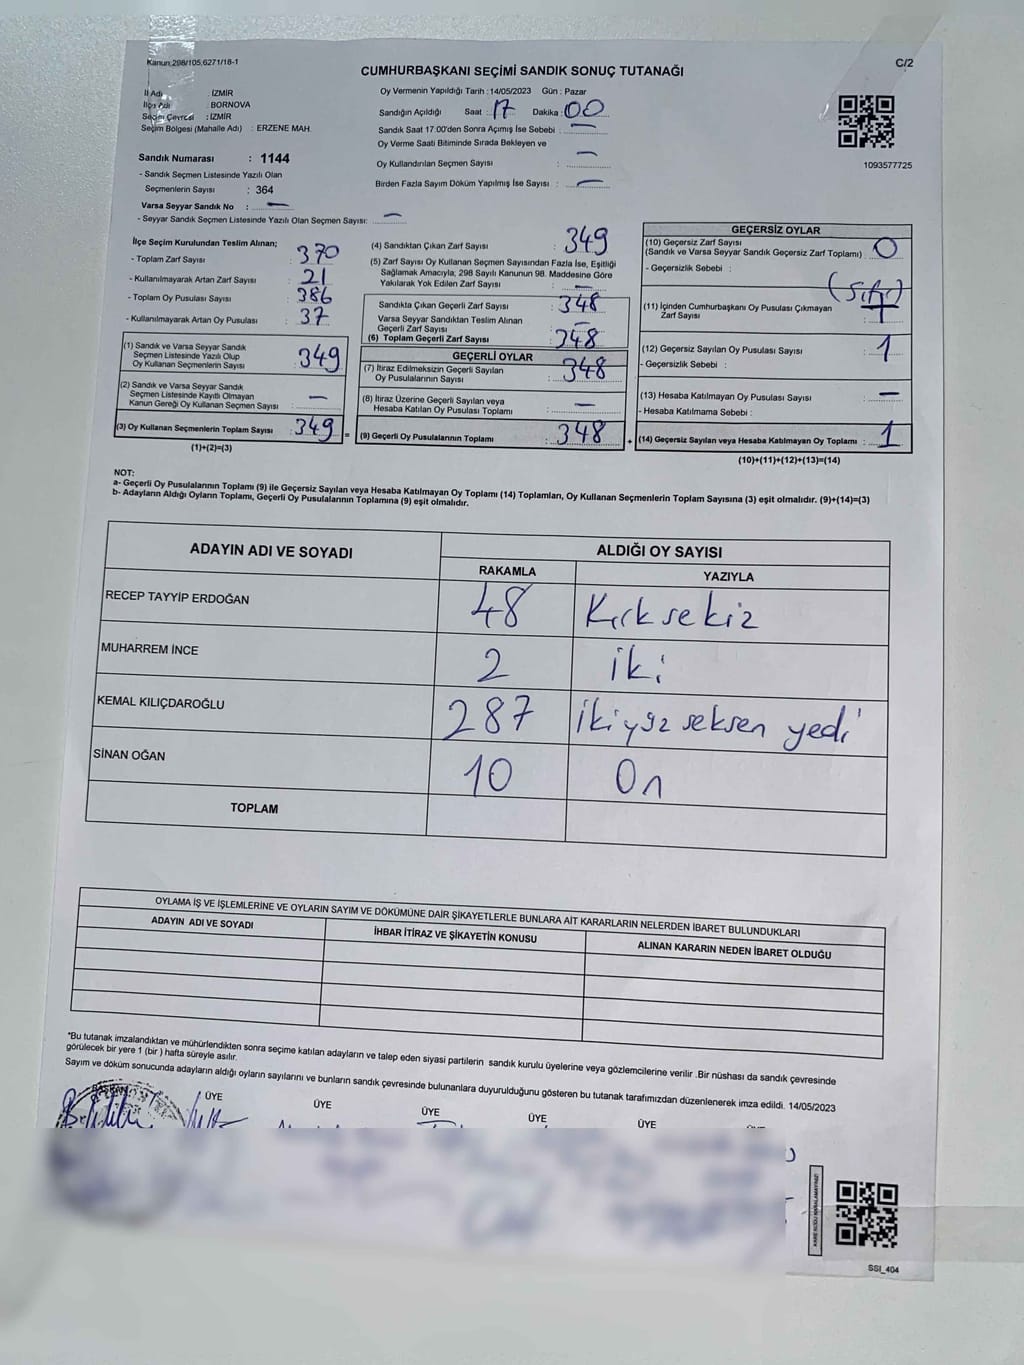 Kanun:298/105,6271/18-1
C/2
CUMHURBAŞKANI SEÇİMİ SANDIK SONUÇ TUTANAĞI
İl Adı : İZMİR
İlçe Adı : BORNOVA
Seçim Çevresi : İZMİR
Seçim Bölgesi (Mahalle Adı) : ERZENE MAH.
Sandık Numarası : 1144
- Sandık Seçmen Listesinde Yazılı Olan
Seçmenlerin Sayısı : 364
Varsa Seyyar Sandık No : —
- Seyyar Sandık Seçmen Listesinde Yazılı Olan Seçmen Sayısı: —
Oy Vermenin Yapıldığı Tarih :14/05/2023 Gün : Pazar
Sandığın Açıldığı Saat : 17 Dakika : 00
Sandık Saat 17:00'den Sonra Açımış İse Sebebi : —
Oy Verme Saati Bitiminde Sırada Bekleyen ve
Oy Kullandırılan Seçmen Sayısı : —
Birden Fazla Sayım Döküm Yapılmış İse Sayısı : —
1093577725
İlçe Seçim Kurulundan Teslim Alınan;
- Toplam Zarf Sayısı : 370
- Kullanılmayarak Artan Zarf Sayısı : 21
- Toplam Oy Pusulası Sayısı : 386
- Kullanılmayarak Artan Oy Pusulası : 37
(1) Sandık ve Varsa Seyyar Sandık
Seçmen Listesinde Yazılı Olup
Oy Kullanan Seçmenlerin Sayısı : 349
(2) Sandık ve Varsa Seyyar Sandık
Seçmen Listesinde Kayıtlı Olmayan
Kanun Gereği Oy Kullanan Seçmen Sayısı : —
(3) Oy Kullanan Seçmenlerin Toplam Sayısı : 349 =
(1)+(2)=(3)
(4) Sandıktan Çıkan Zarf Sayısı : 349
(5) Zarf Sayısı Oy Kullanan Seçmen Sayısından Fazla İse, Eşitliği
Sağlamak Amacıyla, 298 Sayılı Kanunun 98. Maddesine Göre
Yakılarak Yok Edilen Zarf Sayısı : —
Sandıkta Çıkan Geçerli Zarf Sayısı : 348
Varsa Seyyar Sandıktan Teslim Alınan
Geçerli Zarf Sayısı : —
(6) Toplam Geçerli Zarf Sayısı : 348
GEÇERLİ OYLAR
(7) İtiraz Edilmeksizin Geçerli Sayılan
Oy Pusulalarının Sayısı : 348
(8) İtiraz Üzerine Geçerli Sayılan veya
Hesaba Katılan Oy Pusulası Toplamı : —
(9) Geçerli Oy Pusulalarının Toplamı : 348 +
GEÇERSİZ OYLAR
(10) Geçersiz Zarf Sayısı
(Sandık ve Varsa Seyyar Sandık Geçersiz Zarf Toplamı) : 0
- Geçersizlik Sebebi : (Sıfır)
(11) İçinden Cumhurbaşkanı Oy Pusulası Çıkmayan
Zarf Sayısı :
(12) Geçersiz Sayılan Oy Pusulası Sayısı : 1
- Geçersizlik Sebebi :
(13) Hesaba Katılmayan Oy Pusulası Sayısı : —
- Hesaba Katılmama Sebebi :
(14) Geçersiz Sayılan veya Hesaba Katılmayan Oy Toplamı : 1
(10)+(11)+(12)+(13)=(14)
NOT:
a- Geçerli Oy Pusulalarının Toplamı (9) ile Geçersiz Sayılan veya Hesaba Katılmayan Oy Toplamı (14) Toplamları, Oy Kullanan Seçmenlerin Toplam Sayısına (3) eşit olmalıdır. (9)+(14)=(3)
b- Adayların Aldığı Oyların Toplamı, Geçerli Oy Pusulalarının Toplamına (9) eşit olmalıdır.
ADAYIN ADI VE SOYADI ALDIĞI OY SAYISI
RAKAMLA YAZIYLA
RECEP TAYYİP ERDOĞAN 48 Kırk sekiz
MUHARREM İNCE 2 iki
KEMAL KILIÇDAROĞLU 287 ikiyüz seksen yedi
SİNAN OĞAN 10 On
TOPLAM
OYLAMA İŞ VE İŞLEMLERİNE VE OYLARIN SAYIM VE DÖKÜMÜNE DAİR ŞİKAYETLERLE BUNLARA AİT KARARLARIN NELERDEN İBARET BULUNDUKLARI
ADAYIN ADI VE SOYADI İHBAR İTİRAZ VE ŞİKAYETİN KONUSU ALINAN KARARIN NEDEN İBARET OLDUĞU
*Bu tutanak imzalandıktan ve mühürlendikten sonra seçime katılan adayların ve talep eden siyasi partilerin sandık kurulu üyelerine veya gözlemcilerine verilir .Bir nüshası da sandık çevresinde
görülecek bir yere 1 (bir ) hafta süreyle asılır.
Sayım ve döküm sonucunda adayların aldığı oyların sayılarını ve bunların sandık çevresinde bulunanlara duyurulduğunu gösteren bu tutanak tarafımızdan düzenlenerek imza edildi. 14/05/2023
BAŞKAN ÜYE ÜYE ÜYE ÜYE ÜYE
SSI_404